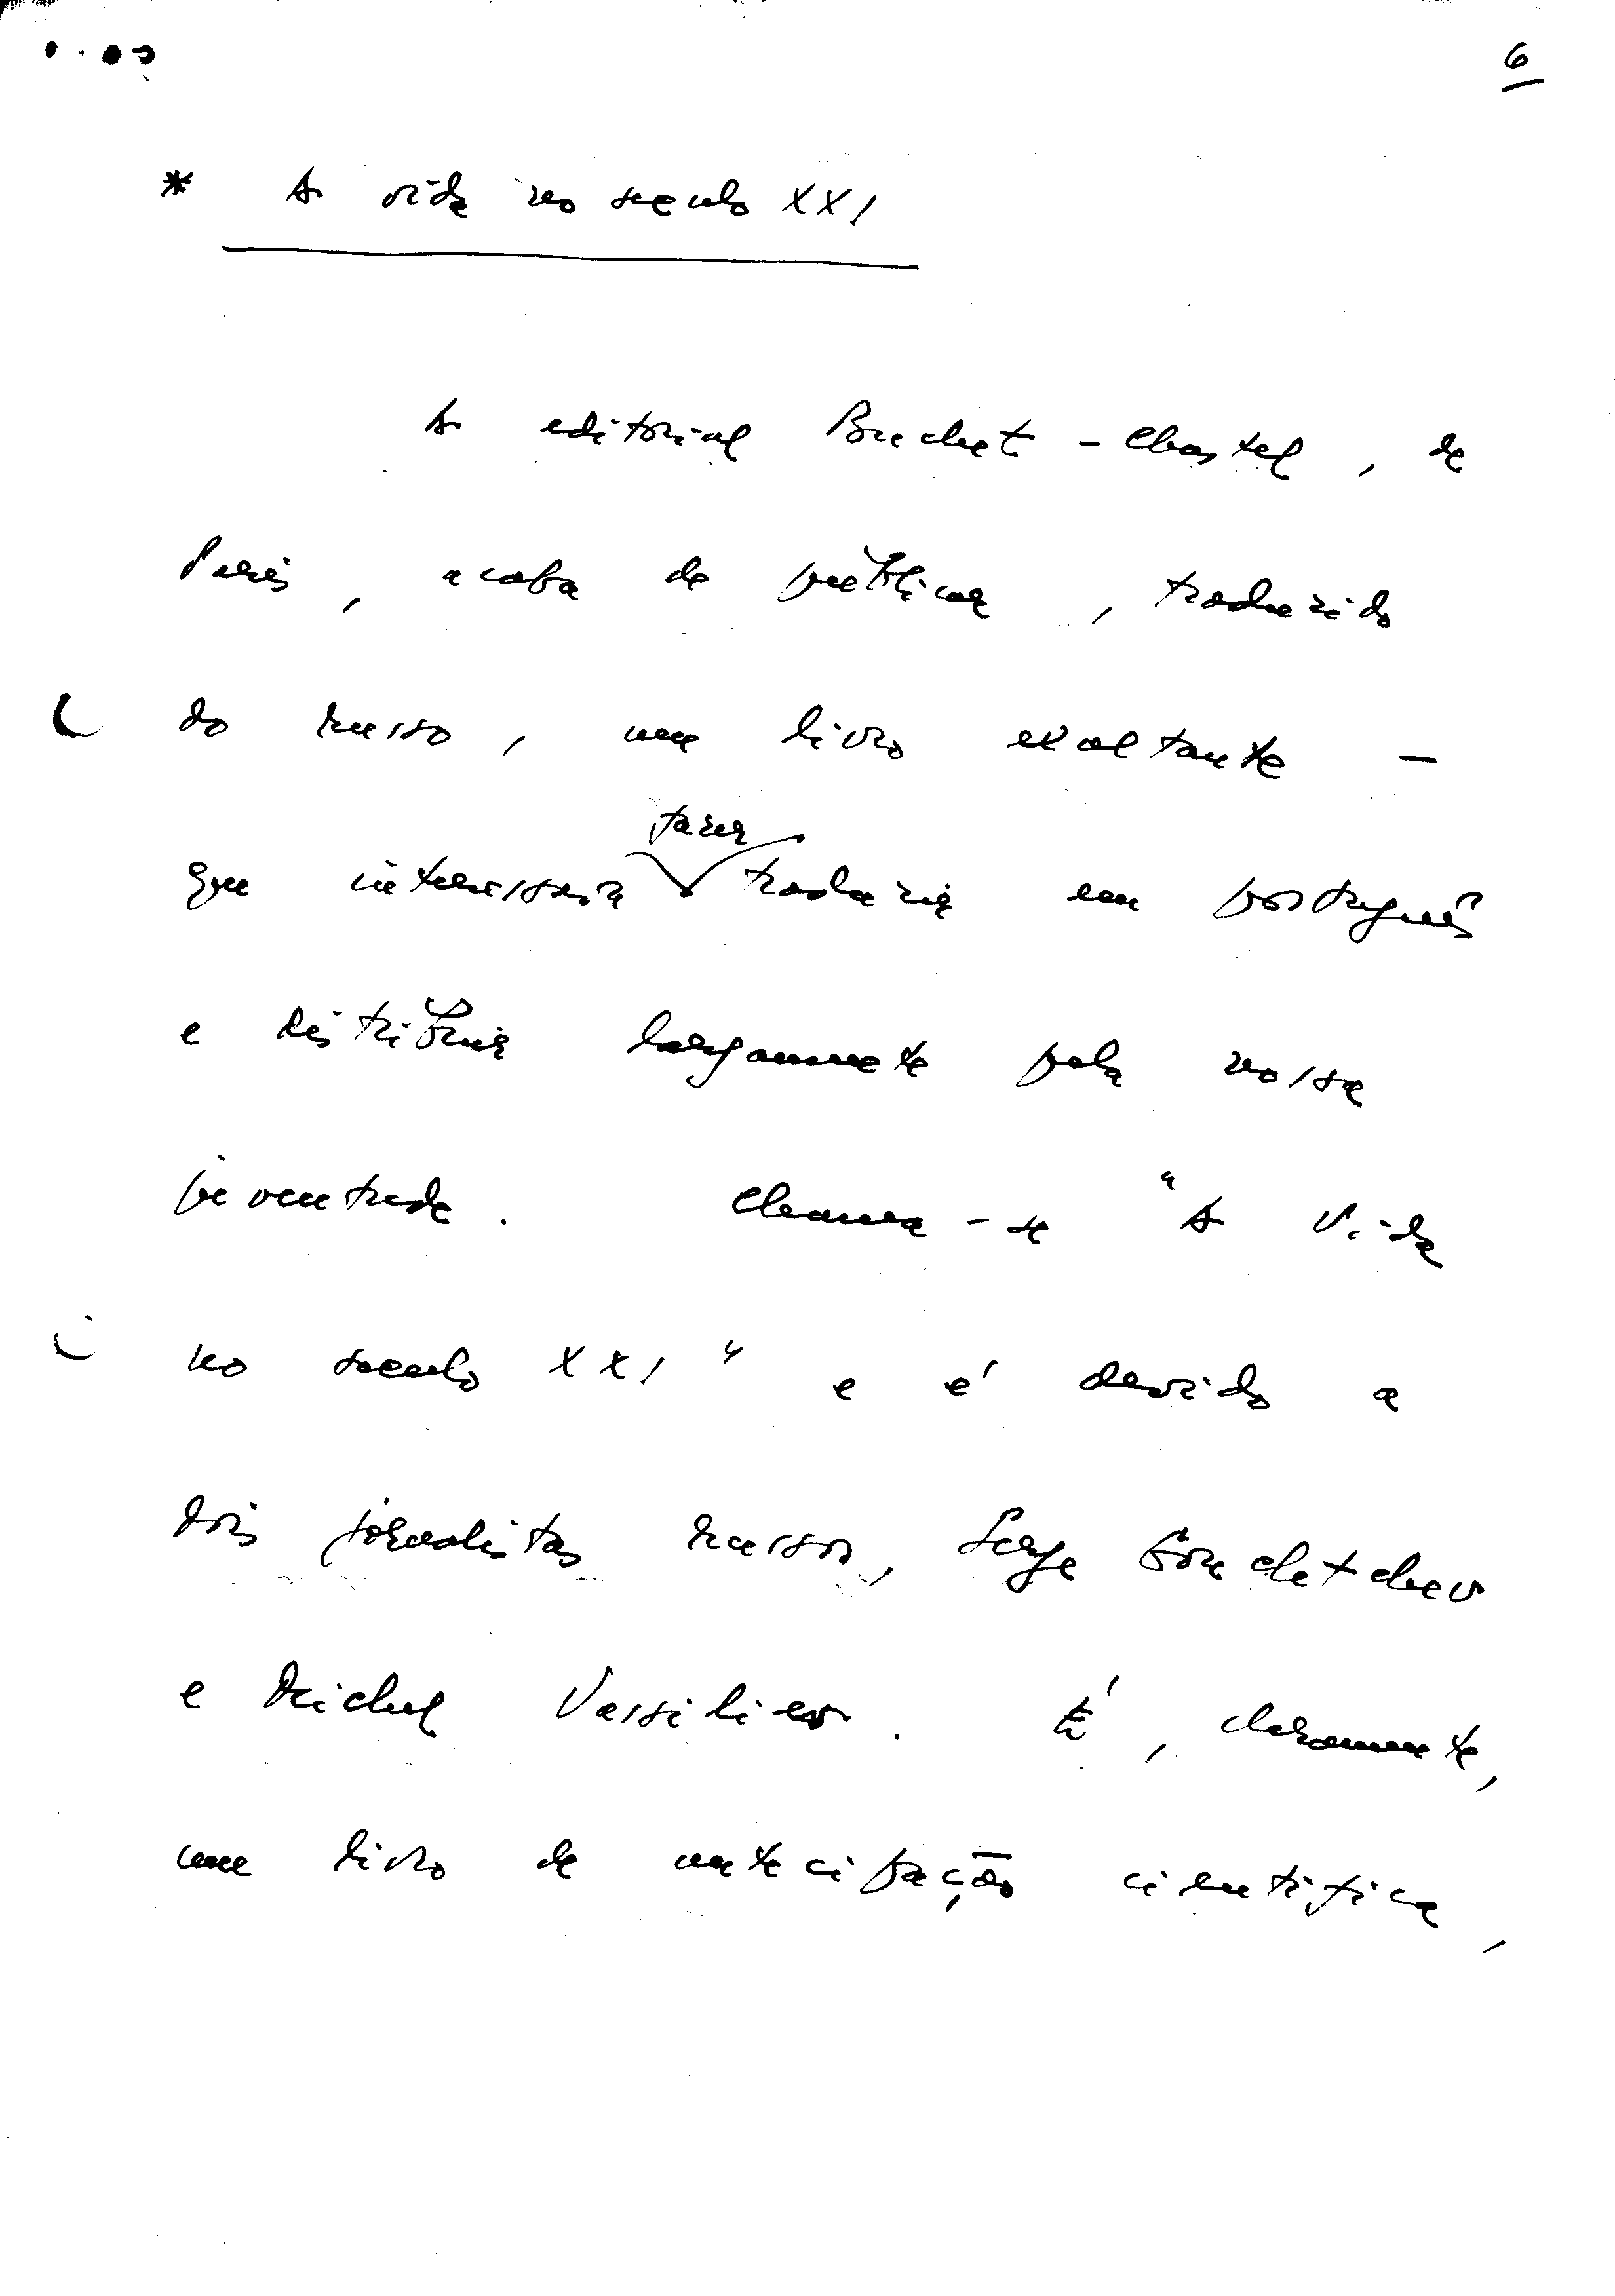 6
* A vida no seculo XXI
A editorial Buchet - Chastel, de
Paris, acaba de publicar, traduzido
do russo, um livro exaltante -
que interessaria fazer traduzir em português
e distribuir largamente pela nossa
juventude. Chama-se "A Vida
no seculo XXI" e é devido a
dois jornalistas russos, Serge Gouchtchev
e Michel Vassiliev. É, claramente,
um livro de antecipação cientifica,